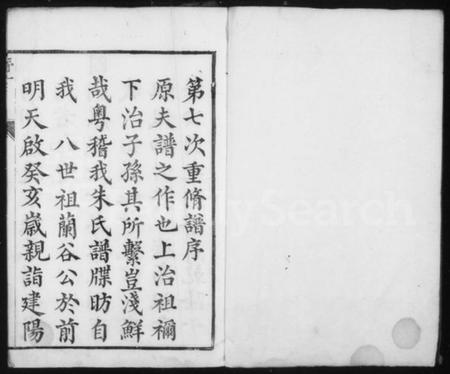 第七次重脩譜序
原夫譜之作也上治祖禰
下治子孫其所繫豈淺鮮
哉粵稽我朱氏譜牒昉自
我 八世祖蘭谷公於前
明天啟癸亥嵗親詣建陽
FamilySearch